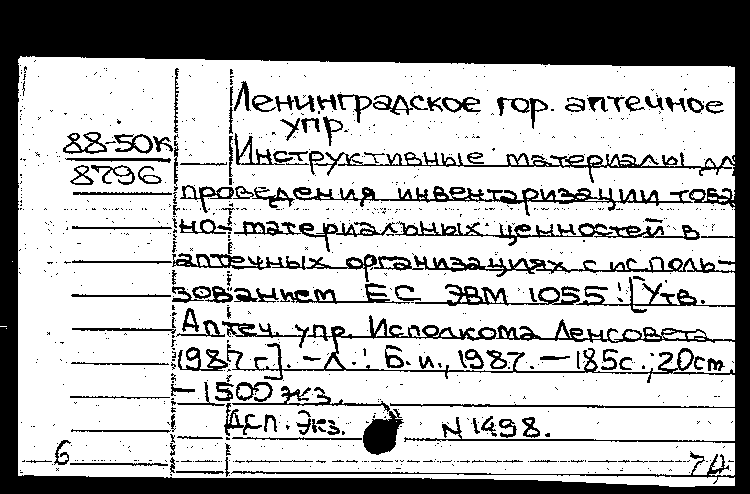 Ленинградское гор. аптечное
упр.
88-50к
8796
Инструктивные материалы для
проведения инвентаризации това
но-материальных ценностей в
аптечных организациях с исполь-
зованием ЕС ЭВМ 1055: [Утв.
Аптеч. упр. Исполкома Ленсовета
1987 г.]. - Л.: Б. и., 1987. - 185с.; 20см.
- 1500 экз.
ДСП. Экз. N 1498.
6